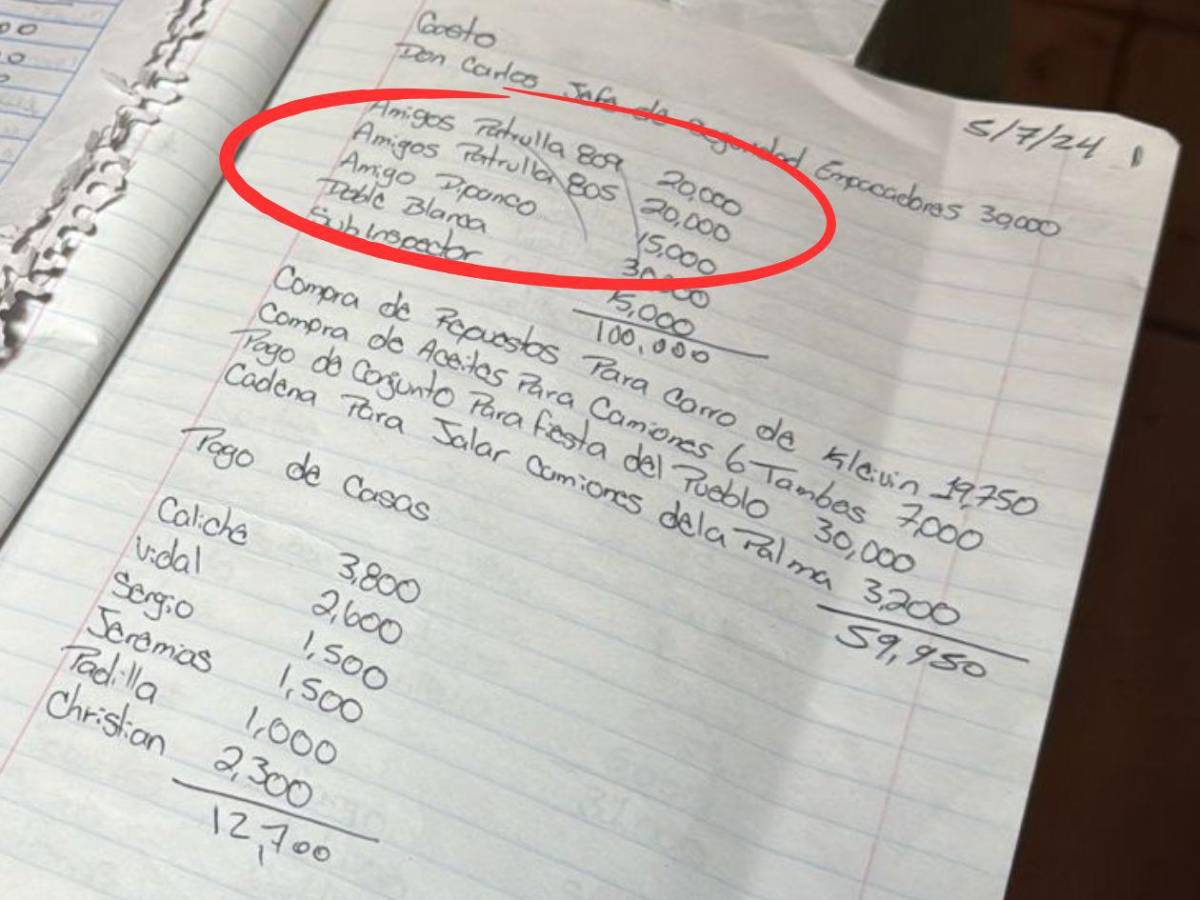 Gasto
5/7/24
Don Carlos Jefe de Seguridad Empacadores 30,000
Amigos Patrulla 809 20,000
Amigos Patrulla 805 20,000
Amigo Dipanco 15,000
Doble Blanca 30,000
Sub inspector 15,000
100,000
Compra de Repuestos Para Carro de Kleivin 19,750
Compra de Aceites Para Camiones 6 Tambos 7,000
Pago de Conjunto Para fiesta del Pueblo 30,000
Cadena Para Jalar Camiones de la Palma 3,200
59,950
Pago de Casas
Caliche 3,800
Vidal 2,600
Sergio 1,500
Jeremias 1,500
Padilla 1,000
Christian 2,300
12,700